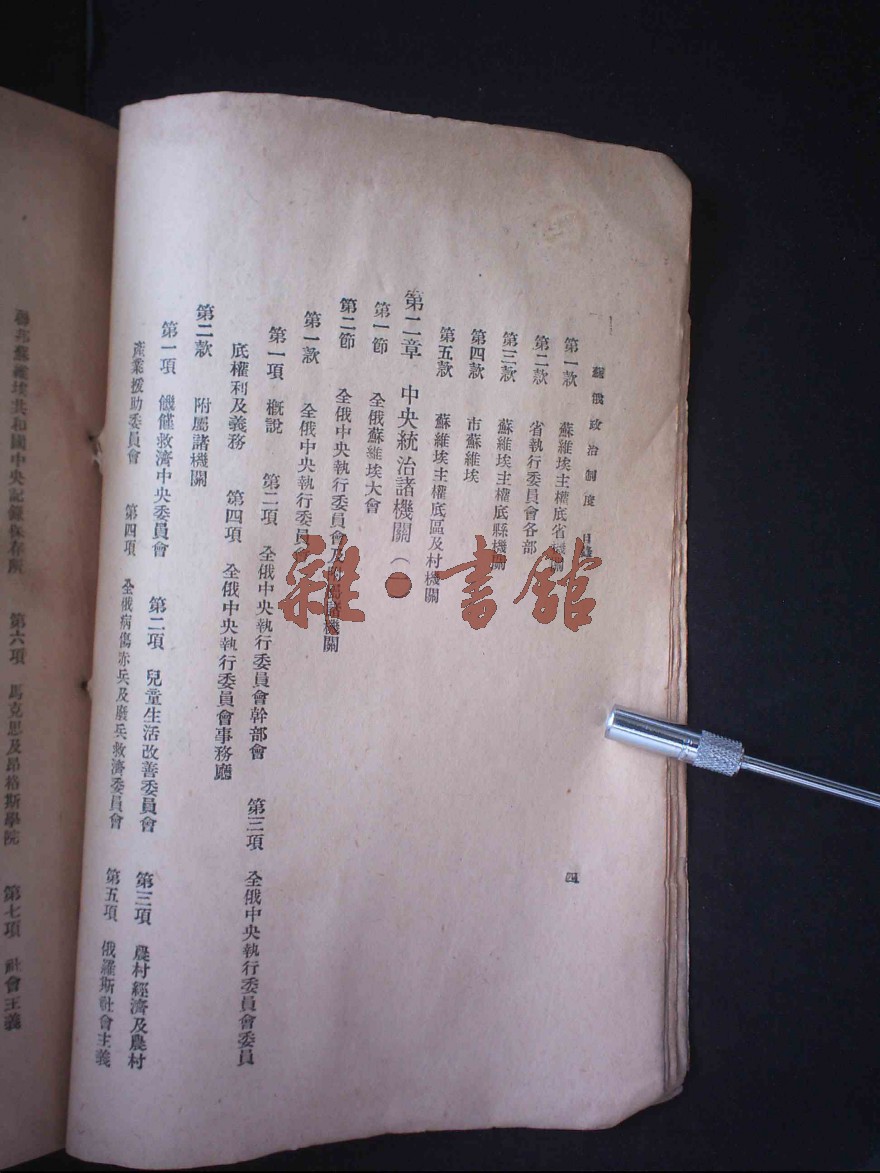 蘇俄政治制度 目錄
四
第一款 蘇維埃主權底省機關
第二款 省執行委員會各部
第三款 蘇維埃主權底縣機關
第四款 市蘇維埃
第五款 蘇維埃主權底區及村機關
第二章 中央統治諸機關(一
第一節 全俄蘇維埃大會
第二節 全俄中央執行委員會及附屬諸機關
第一款 全俄中央執行委員會
第一項 概說 第二項 全俄中央執行委員會幹部會 第三項 全俄中央執行委員會委員
底權利及義務 第四項 全俄中央執行委員會事務廳
第二款 附屬諸機關
第一項 饑饉救濟中央委員會 第二項 兒童生活改善委員會 第三項 農村經濟及農村
產業援助委員會 第四項 全俄病傷赤兵及廢兵救濟委員會 第五項 俄羅斯社會主義
聯邦蘇維埃共和國中央記錄保存所 第六項 馬克思及昂格斯學院 第七項 社會主義
雜·書館